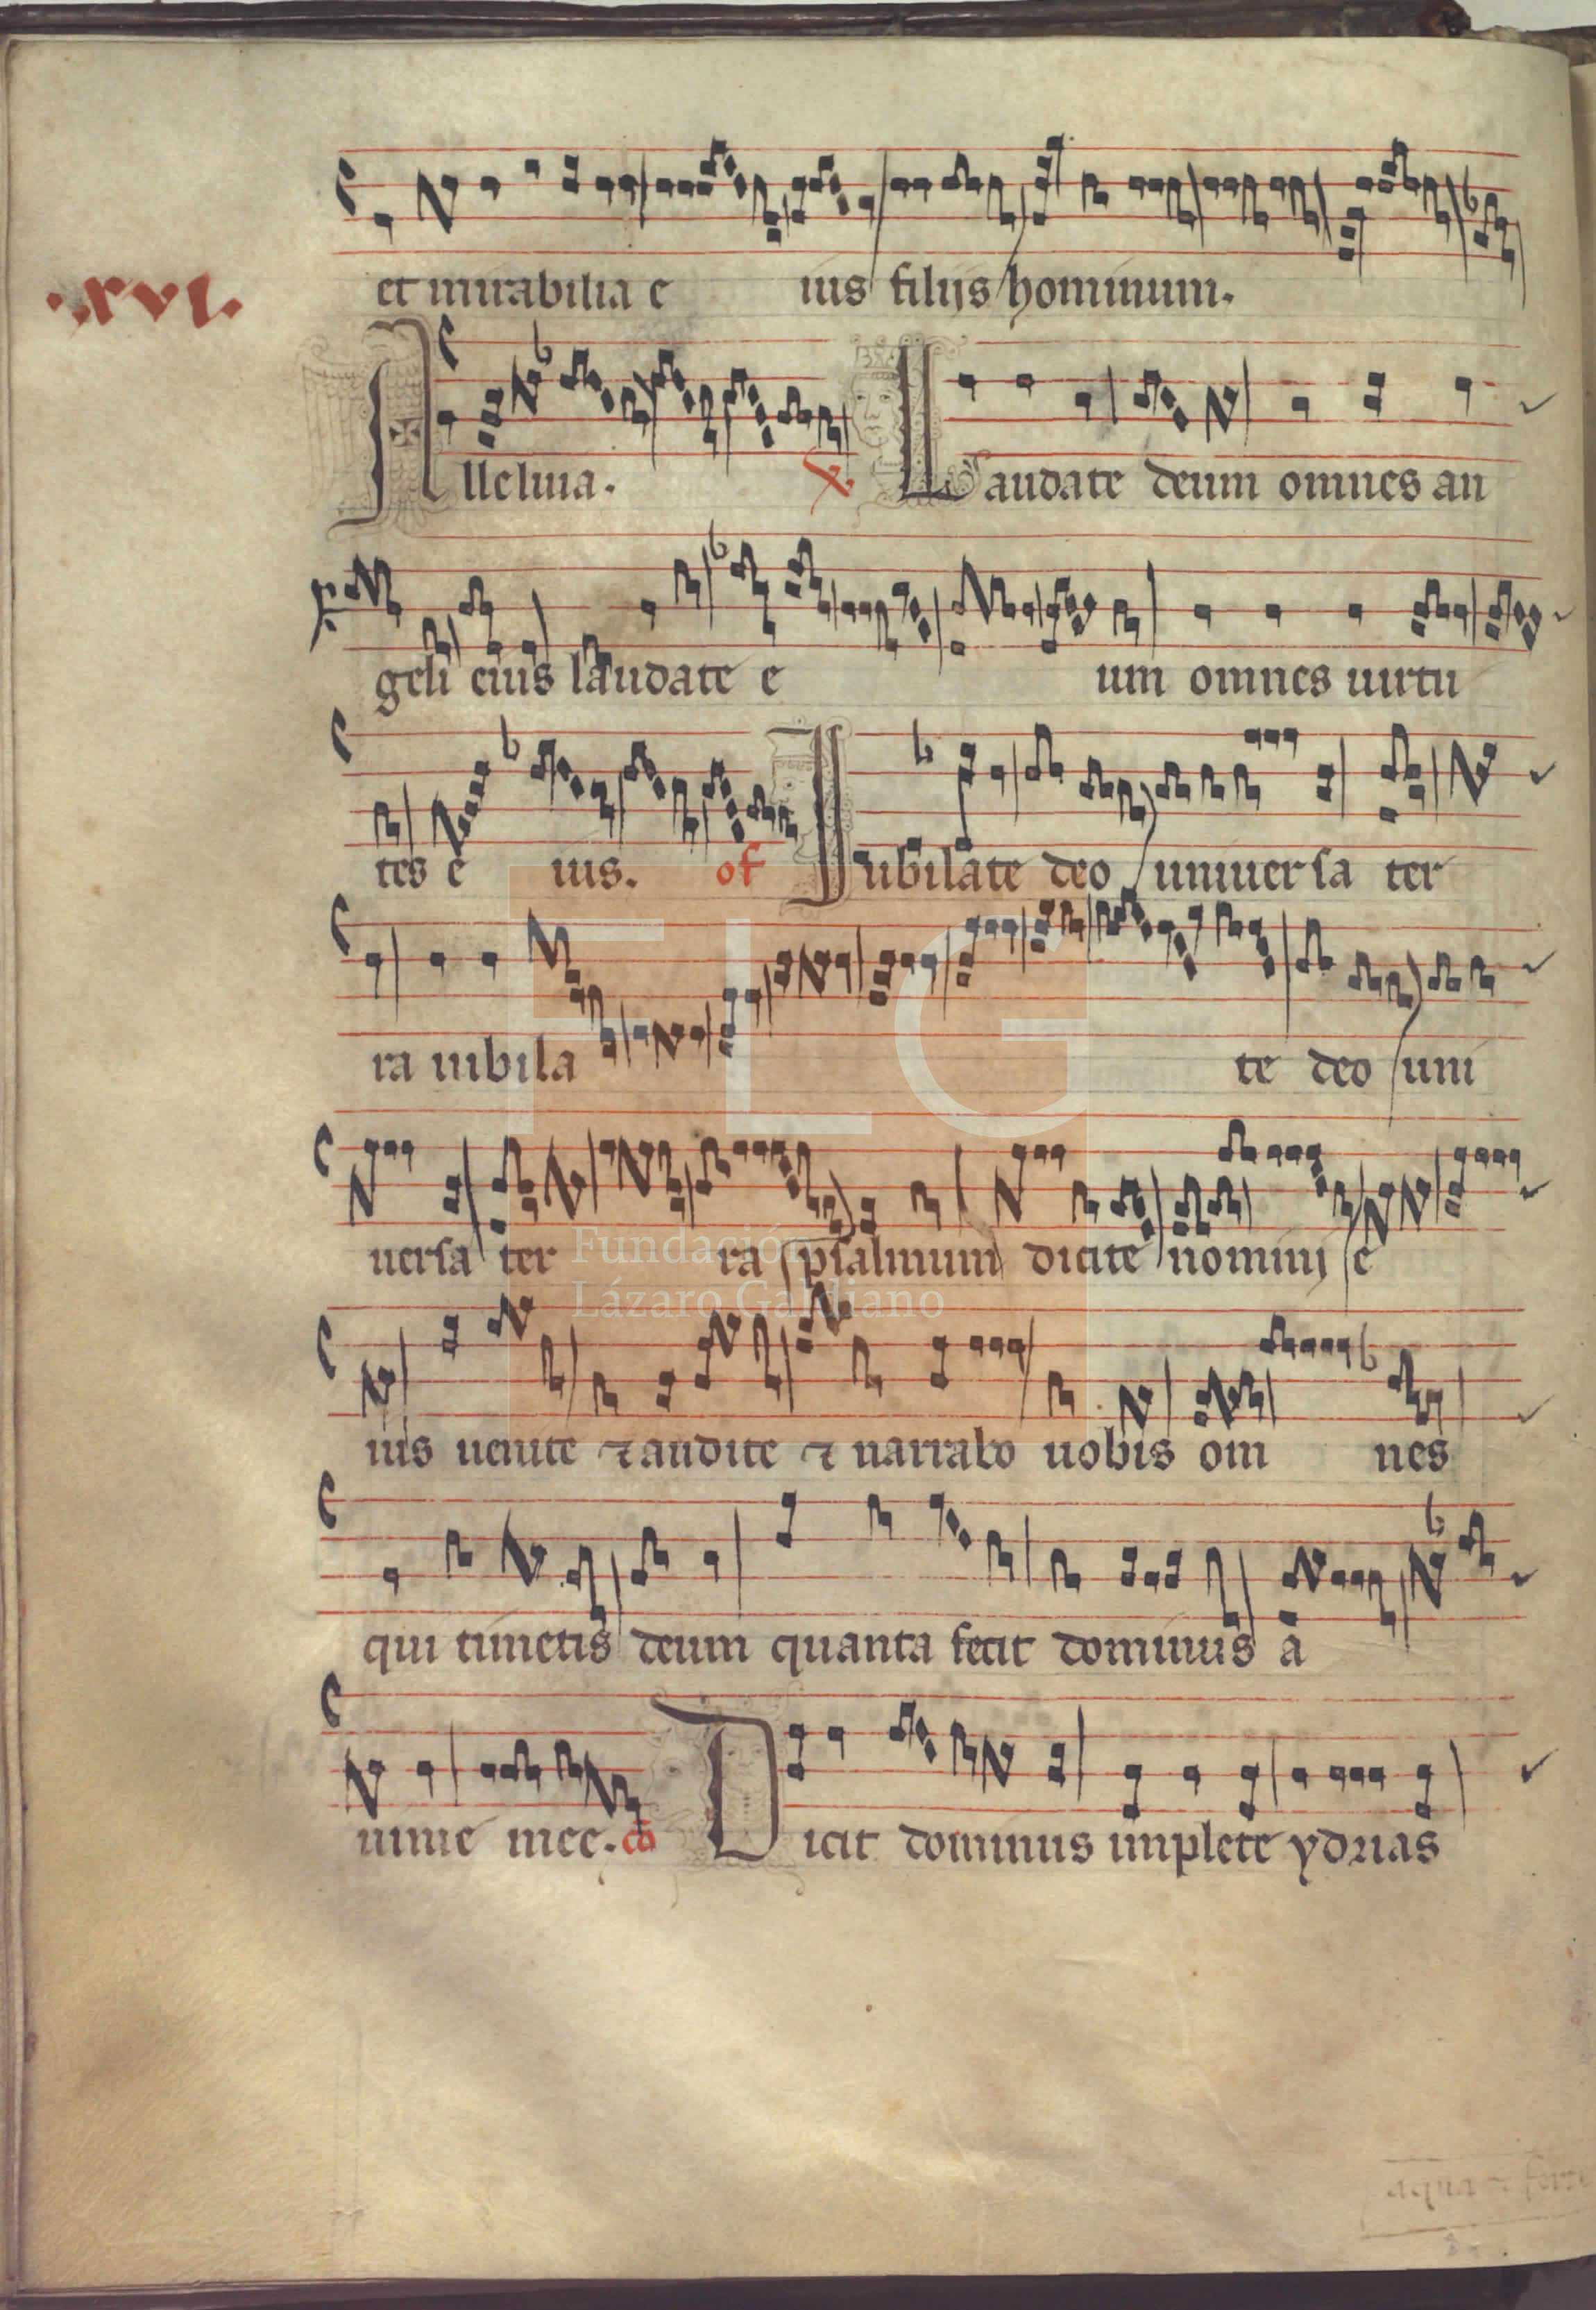 et mirabilia e ius filijs hominum.
.xvi.
Alleluia. Laudate deum omnes an
geli eius laudate e um omnes uirtu
tes e ius. of Iubilate deo uniuersa ter
ra iubila te deo uni
uersa ter ra psalmum dicite nomini e
Fundación
Lázaro Galdiano
FLG
ius uenite ⁊ audite ⁊ narrabo uobis om nes
qui timetis deum quanta fecit dominus a
nime mee. co Dicit dominus implete ydrias